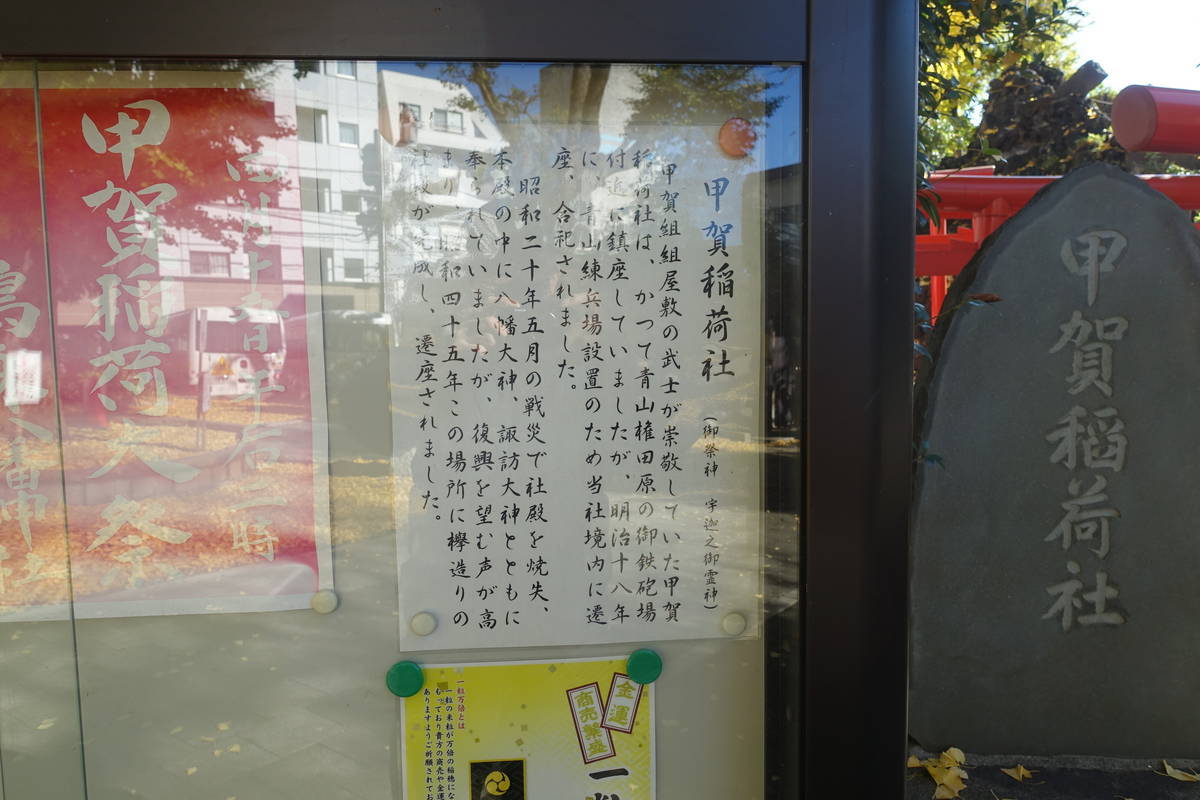 甲賀稲荷社
(御祭神 宇迦之御霊神)
甲賀組組屋敷の武士が崇敬していた甲賀
稲荷社は、かつて青山権田原の御鉄砲場
付近に鎮座していましたが、明治十八年
に、青山練兵場設置のため当社境内に遷
座、合祀されました。
昭和二十年五月の戦災で社殿を焼失、
本殿の中に八幡大神、諏訪大神とともに
奉られていましたが、復興を望む声が高
まり、昭和四十五年この場所に欅造りの
社殿が完成し、遷座されました。
甲賀稲荷社
午后二時
甲賀稲荷大祭
鳩森八幡神社
金運
商売繁盛
一粒万倍とは
一粒の米粒が万倍の稲穂にな
もっており貴方の商売や金運
ありますようご祈願されてお